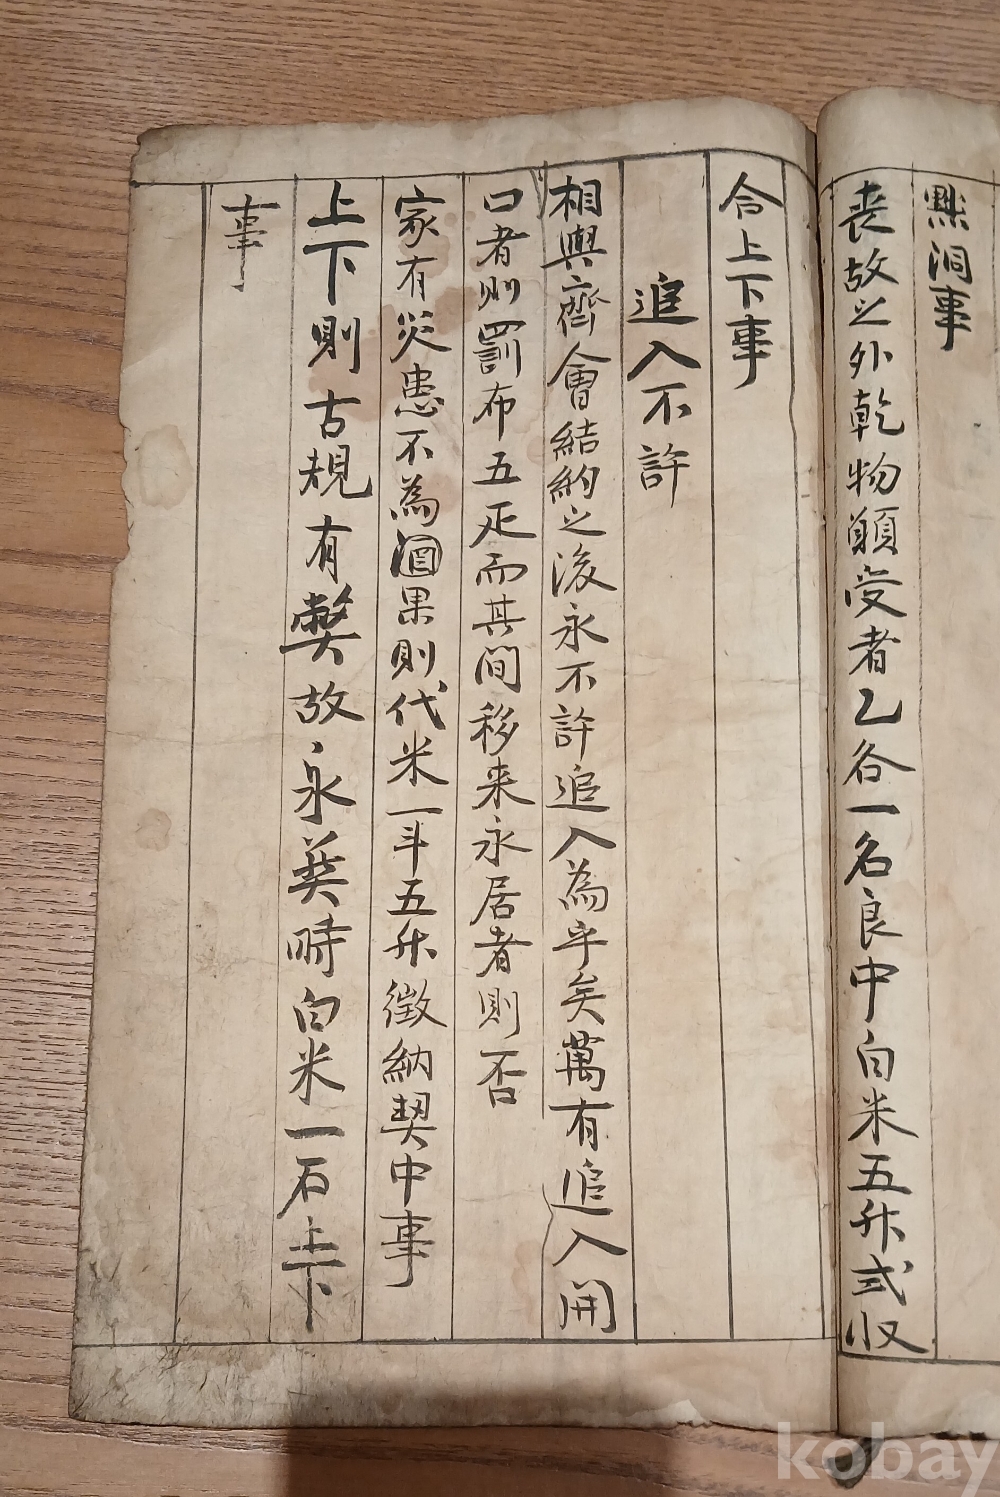 點洞事
喪故之外乾物願受者乙各一名良中白米五升式收
合上下事
追入不許
相與齊會結約之後永不許追入為乎矣萬有追入開
口者則罰布五疋而其間移来永居者則否
家有災患不為 果則代米一斗五升徵納契中事
上下則古規有弊故永葬時白米一石上下
事
kobay